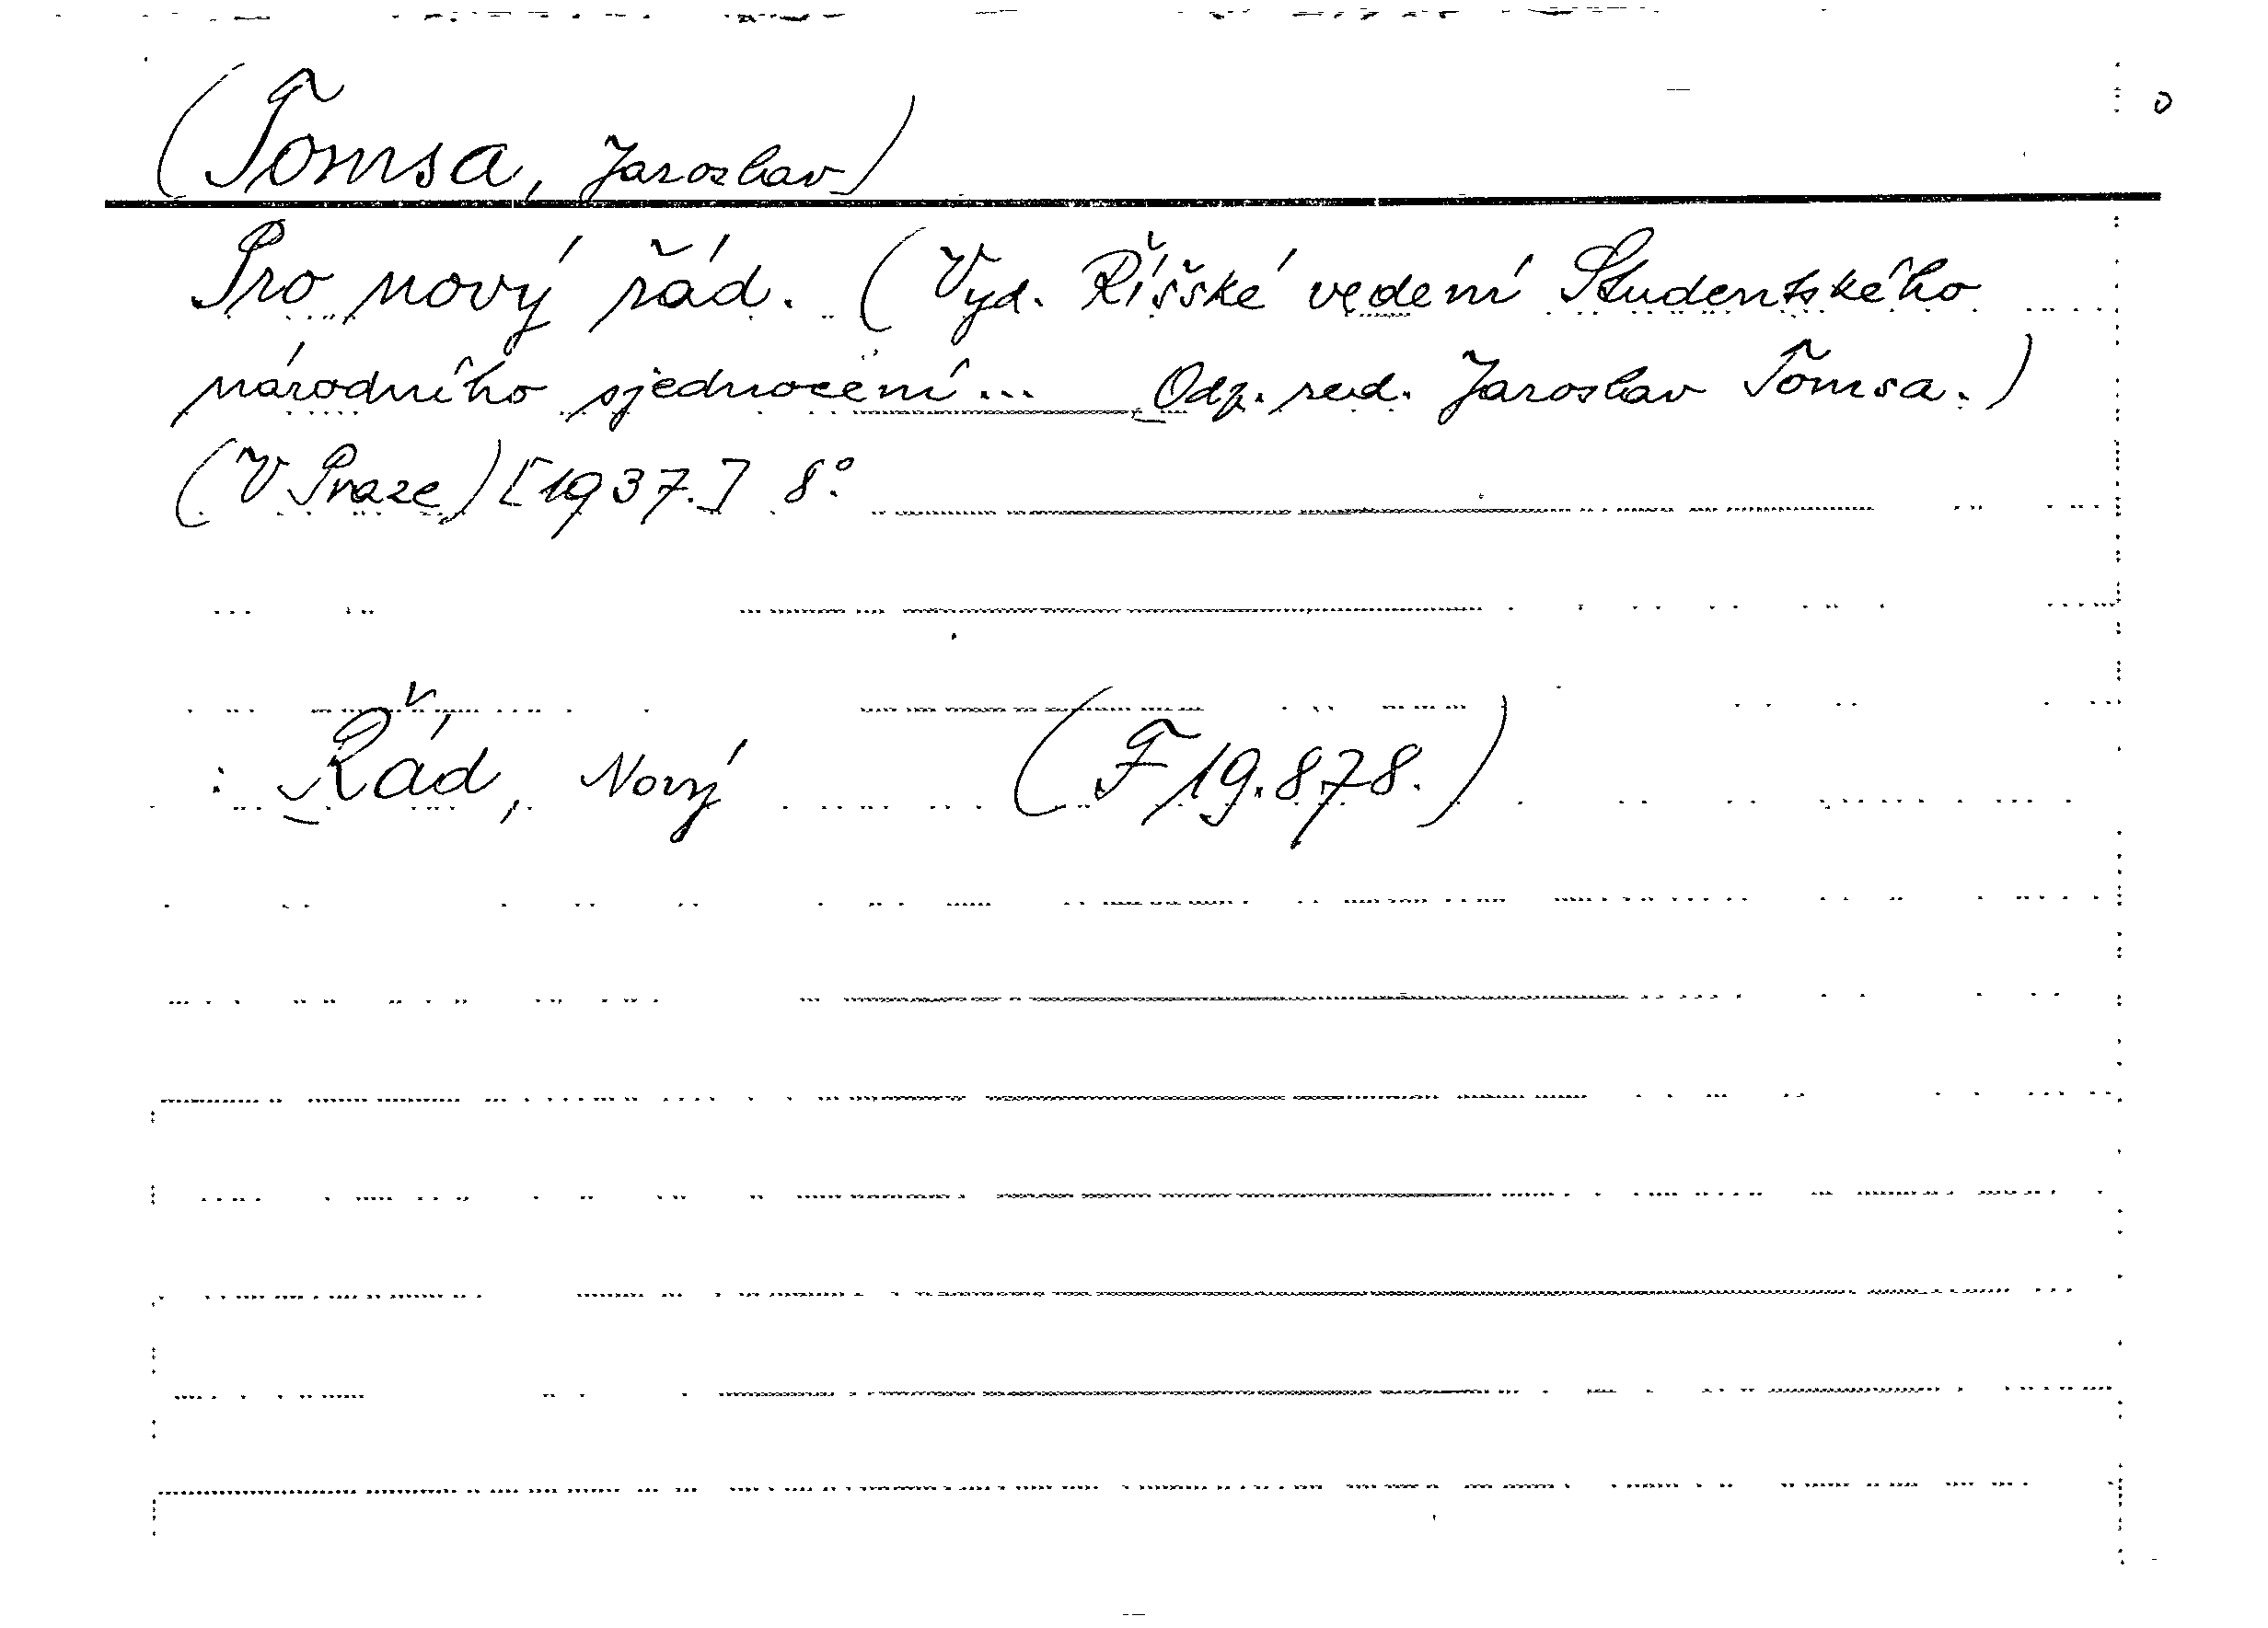 (Tomsa, Jaroslav)
Pro nový řád. (Vyd. Říšské vedení Studentského
národního sjednocení... Odp. red. Jaroslav Tomsa.)
(V Praze) [1937.] 8°.
: Řád, Nový (F 19.878.)